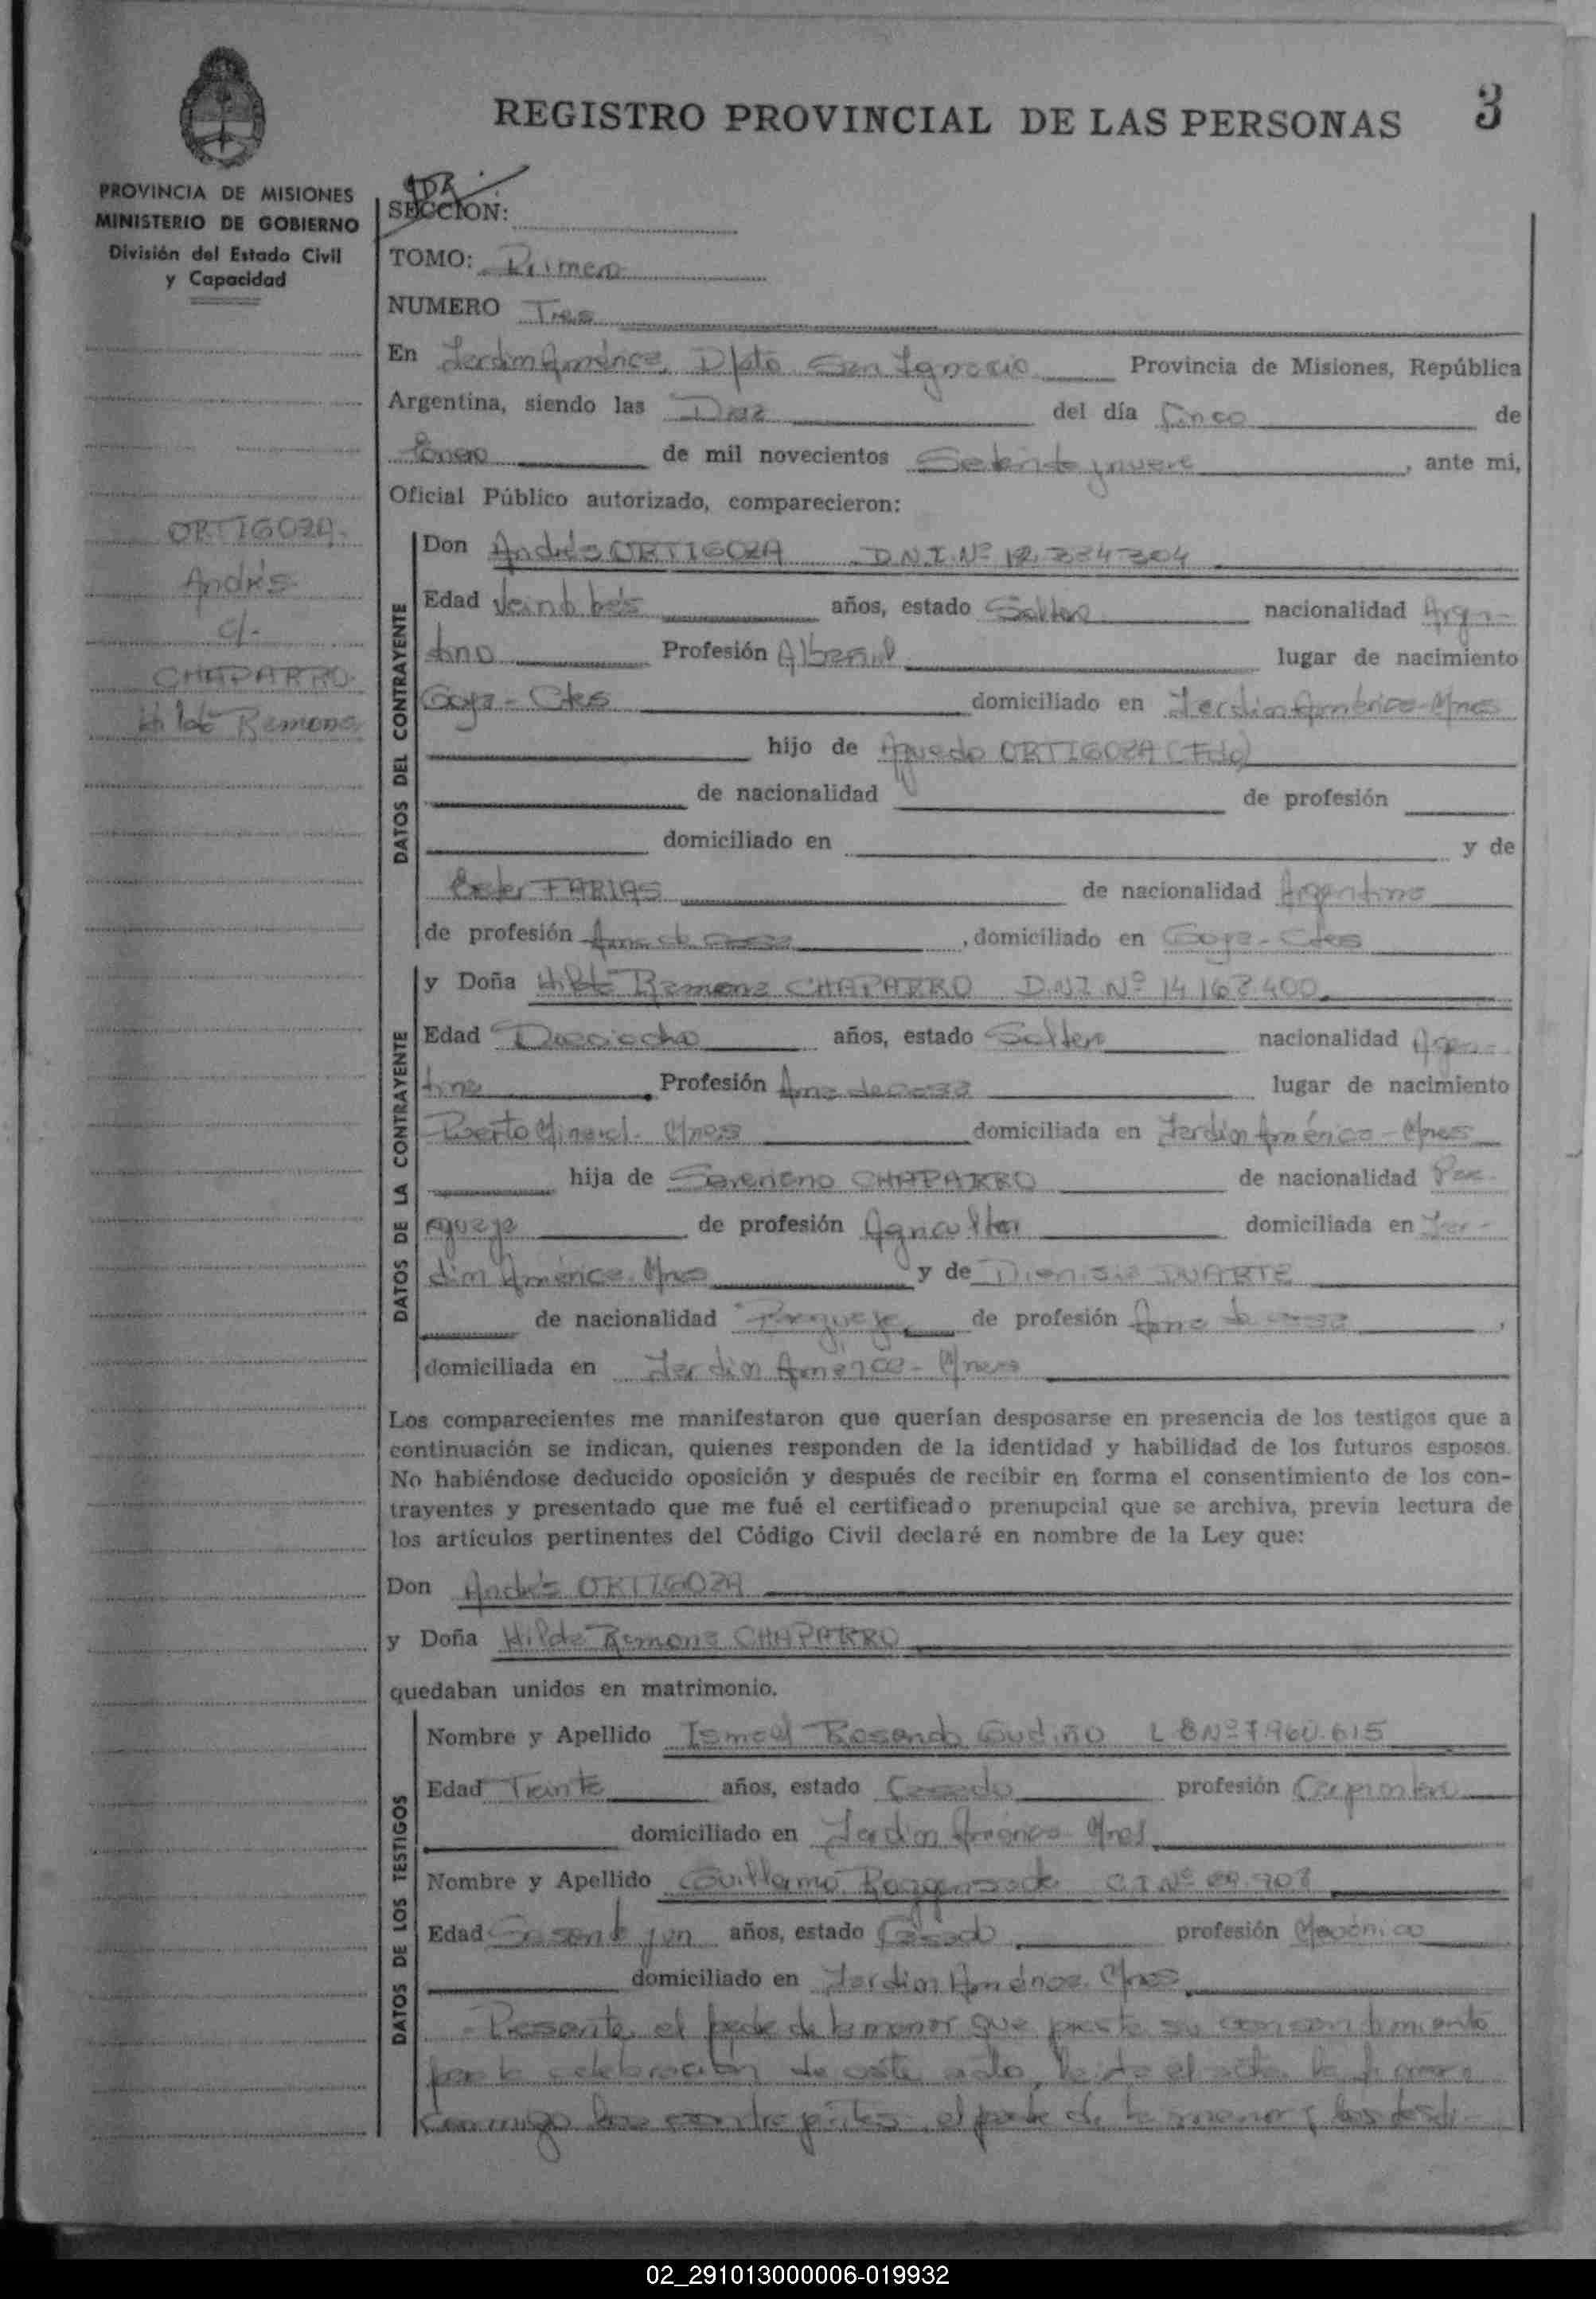 REGISTRO PROVINCIAL DE LAS PERSONAS 3
PROVINCIA DE MISIONES
MINISTERIO DE GOBIERNO
División del Estado Civil
y Capacidad
SECCION:
TOMO: Primero
NUMERO Tres
En Jardin América, Dpto San Ignacio Provincia de Misiones, República
Argentina, siendo las Diez del día Cinco de
Enero de mil novecientos Setenta y nueve, ante mi,
Oficial Público autorizado, comparecieron:
ORTIGOZA
Andrés
c/.
CHAPARRO
Hilda Ramona
DATOS DEL CONTRAYENTE
Don Andrés ORTIGOZA D.N.I. Nº 12.334.304
Edad Veintitrés años, estado Soltero nacionalidad Argen-
tino Profesión Albañil lugar de nacimiento
Goya - Ctes domiciliado en Jardin América - Mnes
hijo de Aguedo ORTIGOZA (Fdo)
de nacionalidad de profesión
domiciliado en y de
Ester FARIAS de nacionalidad Argentina
de profesión Ama de casa, domiciliado en Goya - Ctes
DATOS DE LA CONTRAYENTE
y Doña Hilda Ramona CHAPARRO D.N.I. Nº 14.168.400
Edad Dieciocho años, estado Soltera nacionalidad Argen-
tina Profesión Ama de casa lugar de nacimiento
Puerto Mineral - Mnes domiciliada en Jardin América - Mnes
hija de Severiano CHAPARRO de nacionalidad Para-
guaya de profesión Agricultor domiciliada en Jar-
din América Mnes y de Dionisia DUARTE
de nacionalidad Paraguaya de profesión Ama de casa,
domiciliada en Jardin América - Mnes
Los comparecientes me manifestaron que querían desposarse en presencia de los testigos que a
continuación se indican, quienes responden de la identidad y habilidad de los futuros esposos.
No habiéndose deducido oposición y después de recibir en forma el consentimiento de los con-
trayentes y presentado que me fué el certificado prenupcial que se archiva, previa lectura de
los artículos pertinentes del Código Civil declaré en nombre de la Ley que:
Don Andrés ORTIGOZA
y Doña Hilda Ramona CHAPARRO
quedaban unidos en matrimonio.
DATOS DE LOS TESTIGOS
Nombre y Apellido Ismael Rosendo Gudiño L E Nº 7.960.615
Edad Treinta años, estado Casado profesión Carpintero
domiciliado en Jardin América Mnes
Nombre y Apellido Guillermo C.I. Nº 89.708
Edad Sesenta y un años, estado Casado profesión Mecánico
domiciliado en Jardin América Mnes
Presente el padre de la menor que presta su consentimiento
para la celebración de este acto, leida el acta la firman
conmigo los contrayentes, el padre de la menor y los testi-
02_291013000006-019932